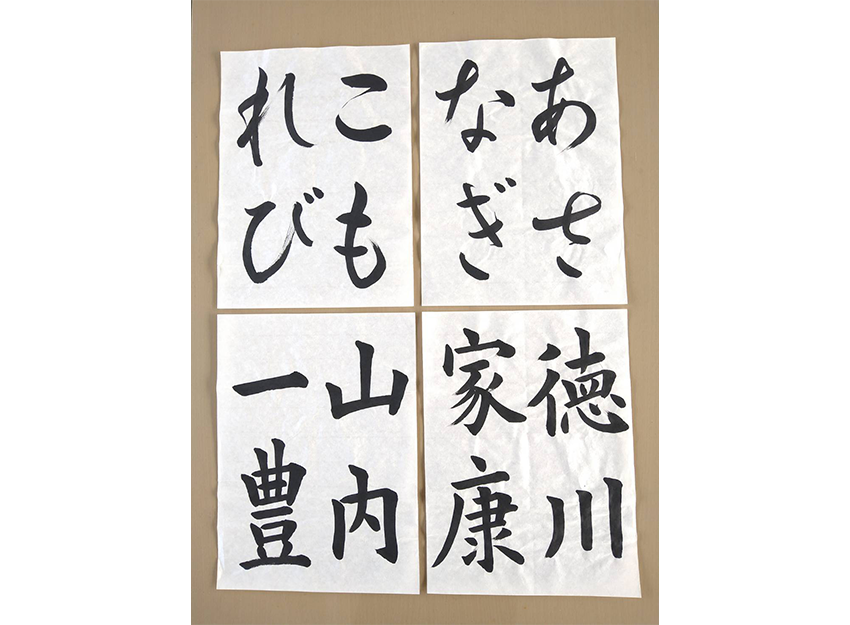 あさ
なぎ
こも
れび
徳川
家康
山内
一豊